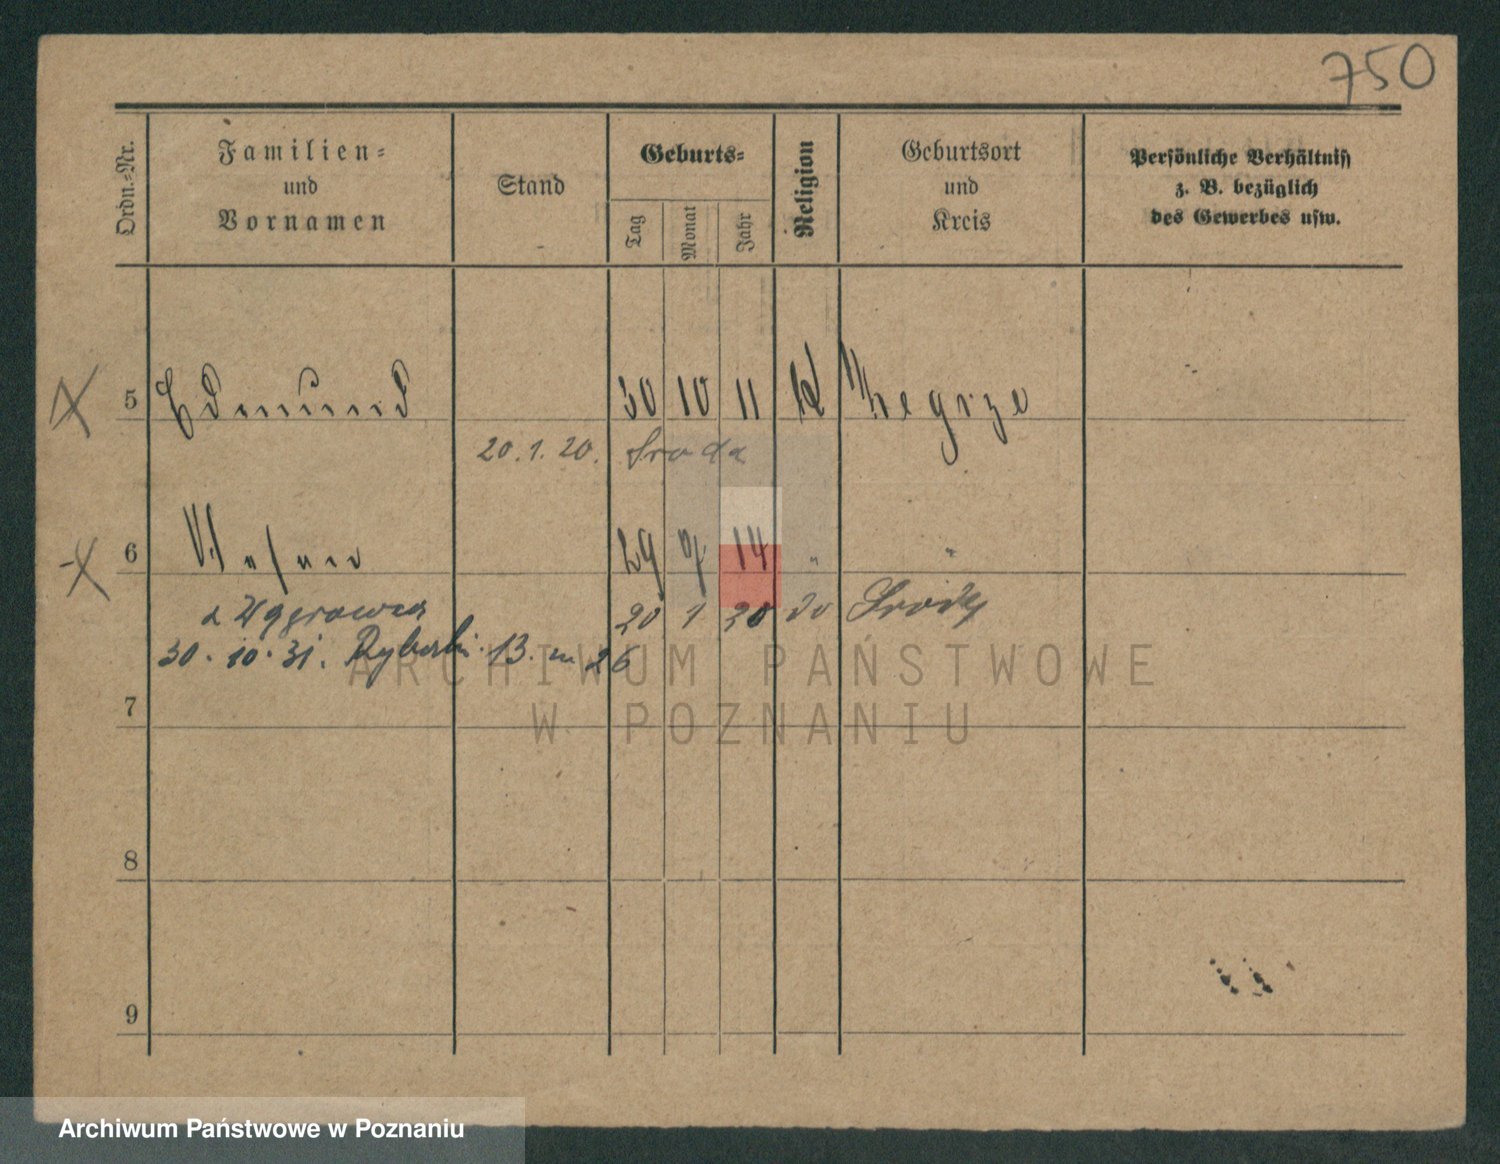 750
Ordn.-Nr.
Familien-
und
Vornamen
Stand
Geburts-
Tag
Monat
Jahr
Religion
Geburtsort
und
Kreis
Persönliche Verhältniss
z. B. bezüglich
des Gewerbes usw.
5 Edmund 30 10 11
20.1.20. Sroda
6 Stefan 29 14 "  "
20 1 20
30.10.31. 13 m 26
7
8
9
ARCHIWUM PAŃSTWOWE
W POZNANIU
Archiwum Państwowe w Poznaniu